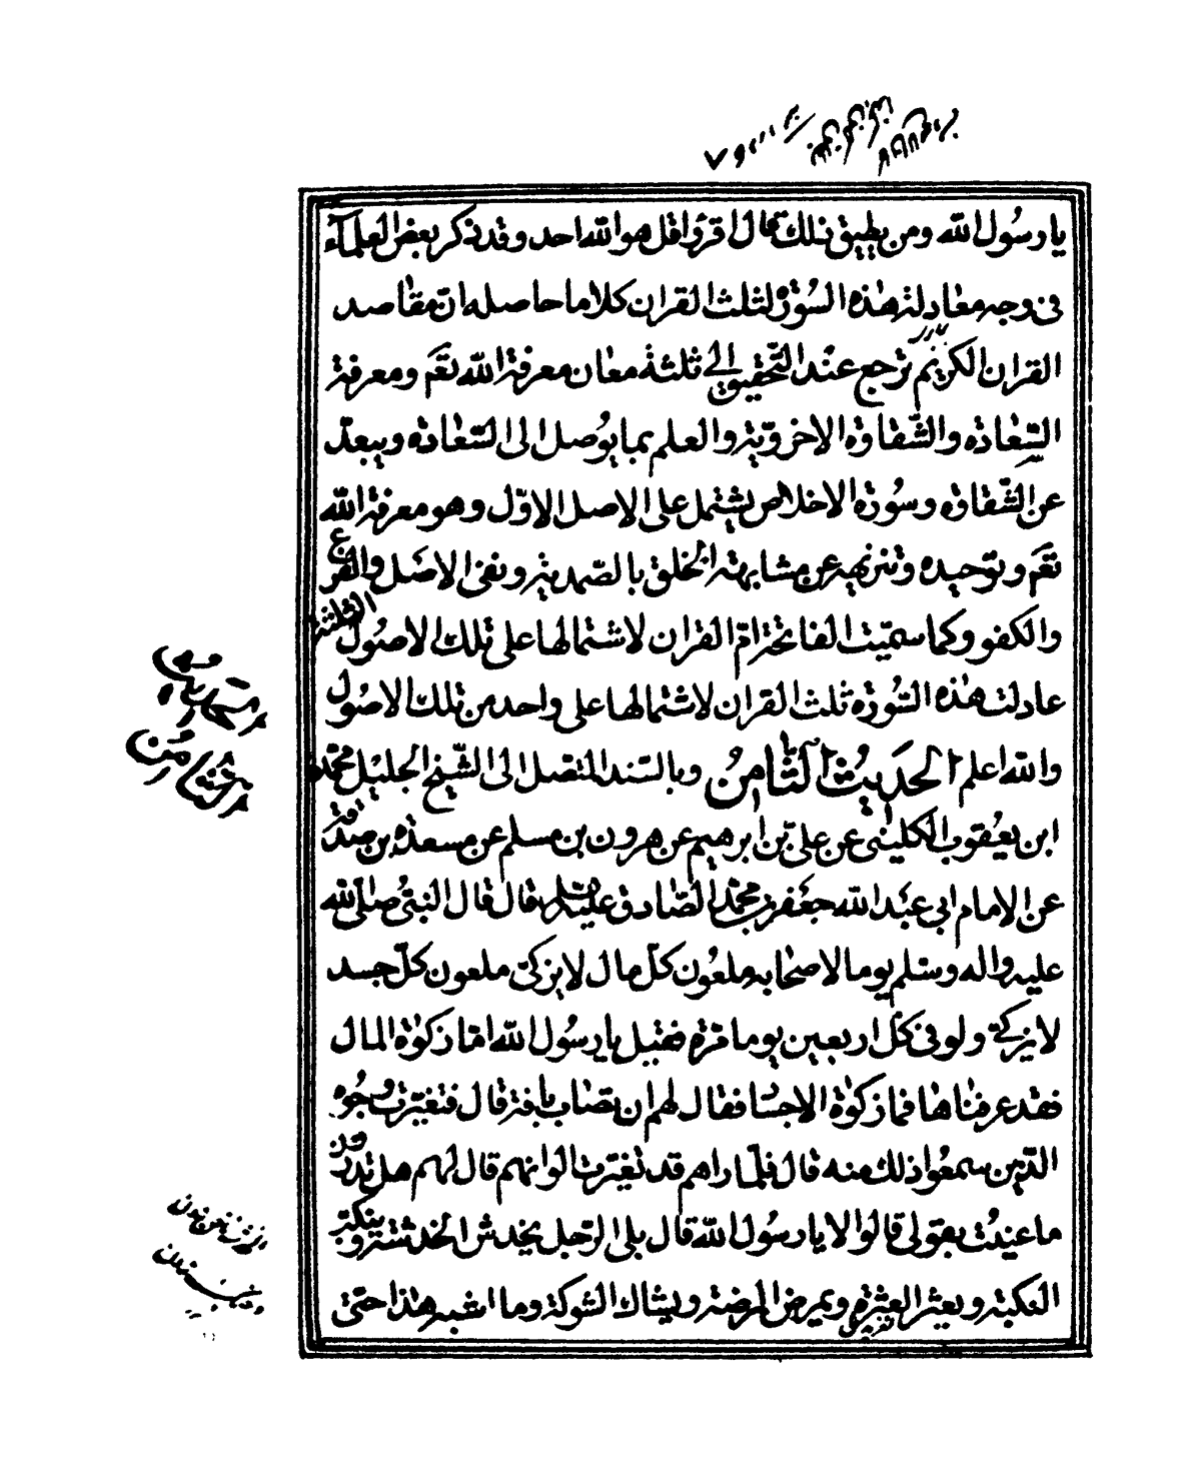 يا رسُول الله ومن يطيق ذلك قال اقرؤا قل هو الله احد وقد ذكر بعض العلمآء
فى وجه معادلة هٰذه السُّورة لثلث القران كلاما حاصله انّ مقاصد
القران الكريم ترجع عند التّحقيق الى ثلثة معان معرفة الله تعَم ومعرفة
السّعادة والشّقاوة الاخرويّة والعلم بما يوُصل الى السّعادة ويبعّد
عن الشّقاوة وسُورة الاخلاص يشتمل على الاصل الاوّل وهو معرفة الله
تعَم وتوحيده وتنزيهه عن مشابهة الخلق بالصّمدية ونفى الاصَل والفرع
والكفو وكما سمّيت الفاتحة امّ القران لاشتمالها على تلك الاصُول الثلثة
عادلت هٰذه السّورة ثلث القران لاشتمالها على واحد من تلك الاصُول
والله اعلم الحَديثُ الثّامنُ وبالسّند المتّصل الى الشّيخ الجليل محمّد
ابن يعقوب الكلينى عن علىّ بن ابرهيم عن هرون بن مسلم عن مسعدة بن صدقة
عن الامام ابى عبَد الله جعَفر بن محمّد الصّادق عليه السلم قال قال النّبىّ صلّى الله
عليه واله وسلم يوما لاصحابه ملعُون كلّ مال لا يزكّى ملعون كلّ جسد
لا يزكّى ولو فى كلّ اربعين يوما مرّة فقيل يا رسُول الله امّا زكوٰة المال
فقد عرفناها فما زكوٰة الاجساد فقال لهم ان تصاب بافة قال فتغيّرت وجُوه
الّذين سمعُوا ذلك منه قال فلمّا راهم قد تغيّرت الوانهم قال لهم هل تدرون
ما عنيتُ بقولى قالوا لا يا رسُول الله قال بلى الرّجل يخدش الخدشة وينكب
النكبة ويعثر العثرة ويمرض المرضة ويشاك الشوكة وما اشبه هٰذا حتّى